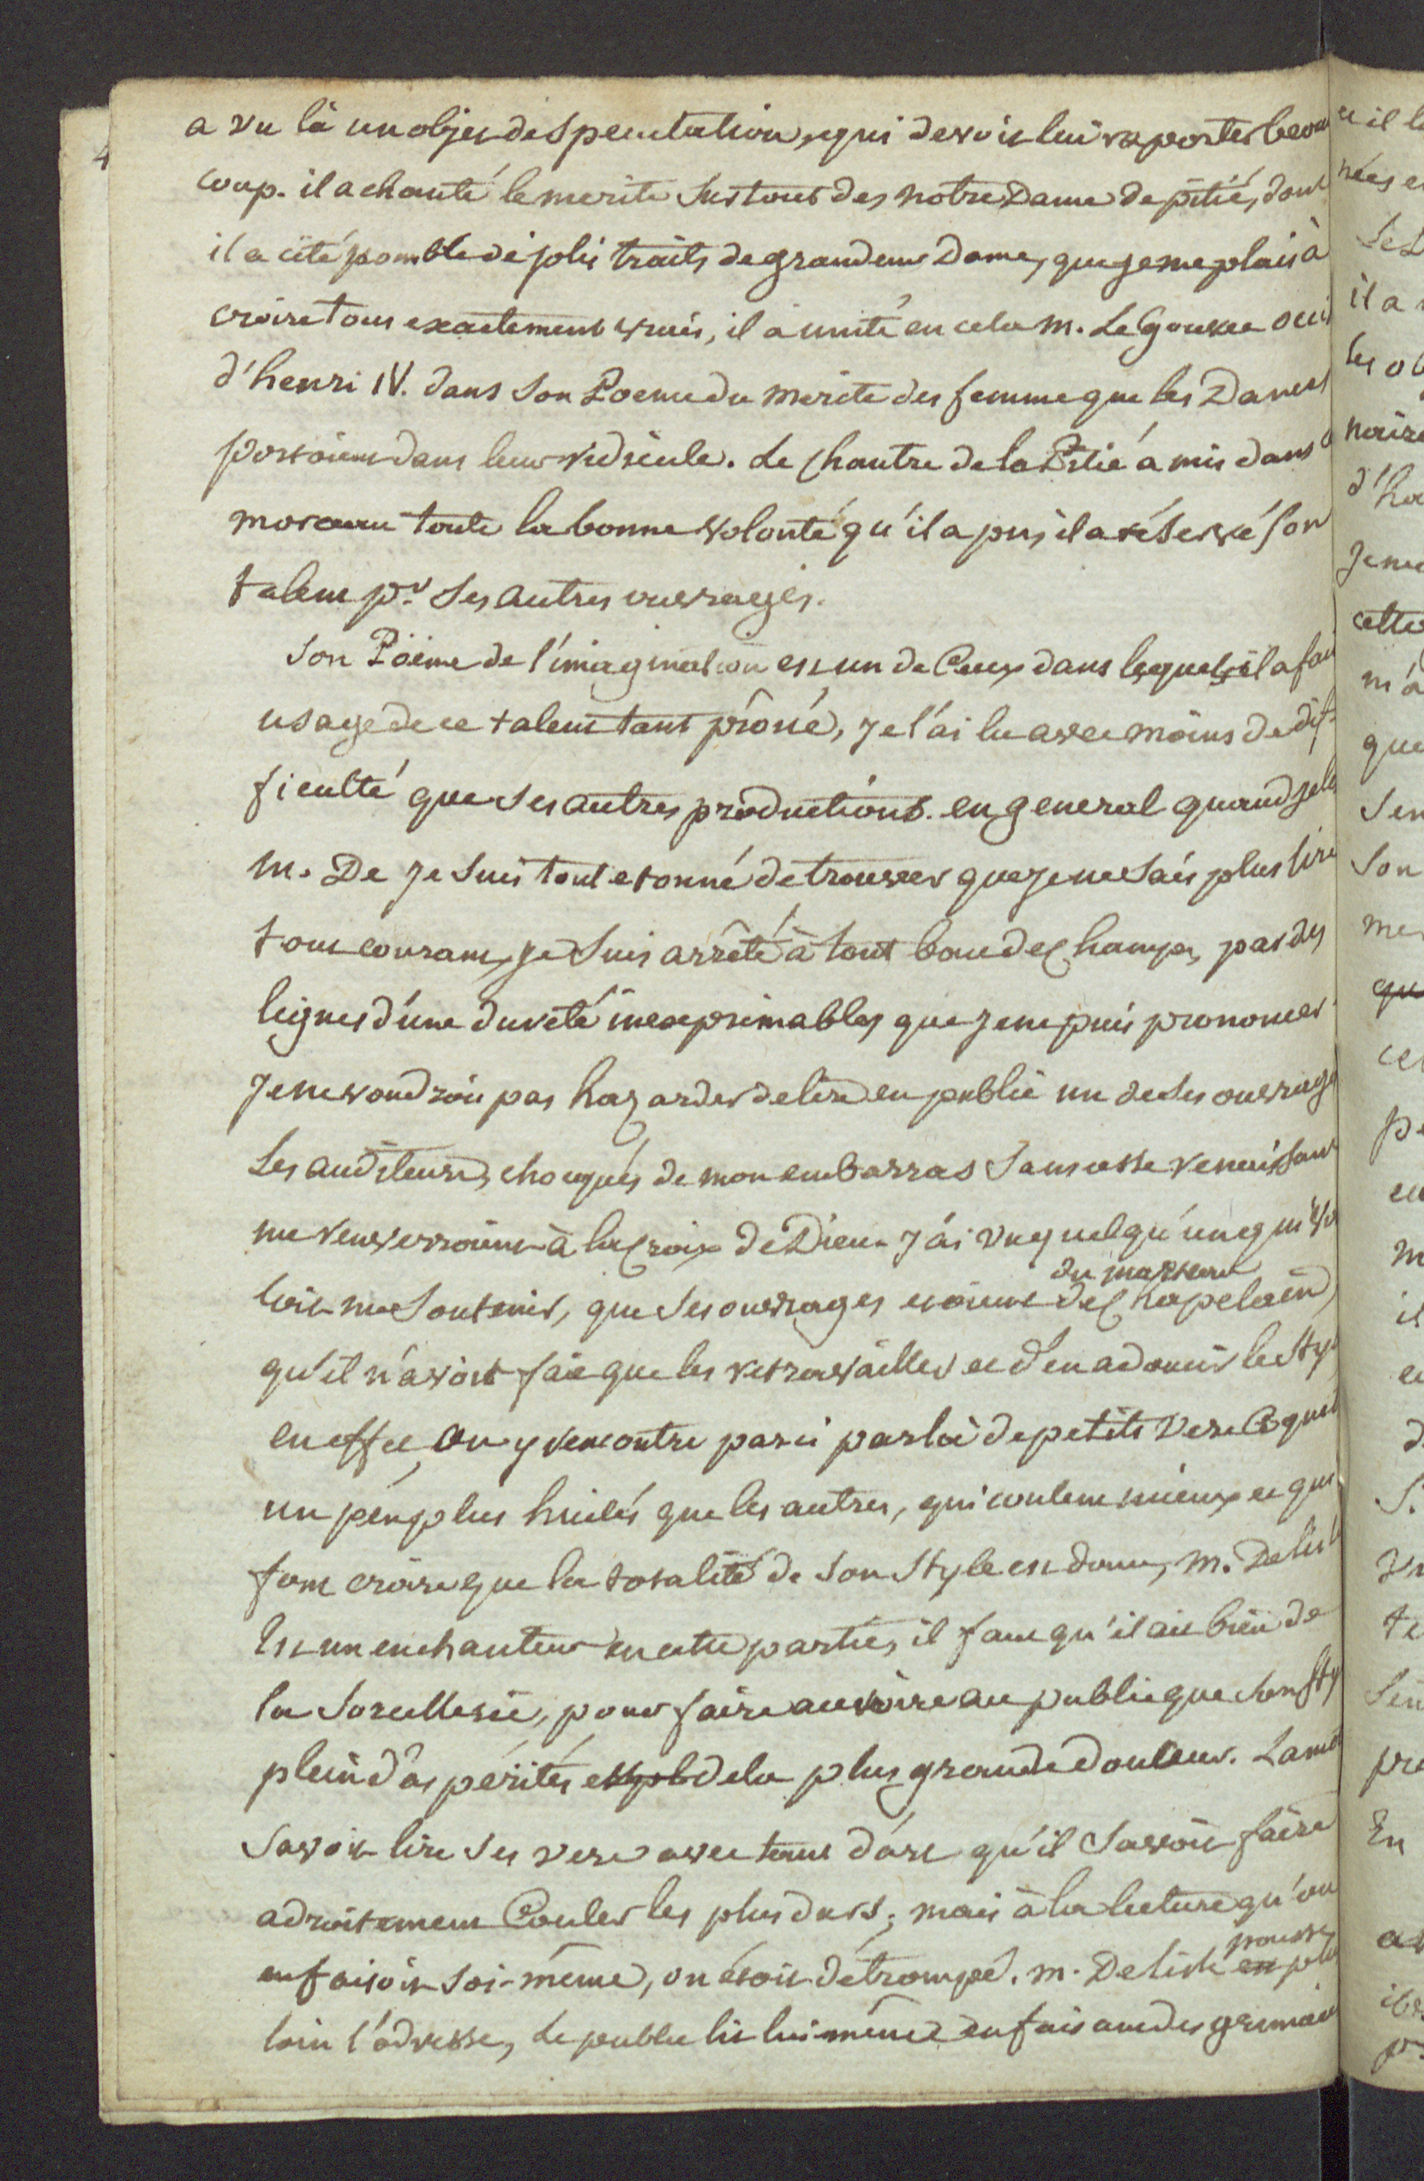 4
a vu là un objet de speculation, qui devoit lui raporter beau
coup. il a chanté le merite surtout des notre Dame de pitié, dont
il a cité nombre de jolis traits de grandeur Dame, que je me plais à
croire tous exactement vrais, il a imité en cela M. Le Gouvé
d'henri IV. dans son Poeme du merite des femme que les Dames
portoient dans leur ridicule. Le Chantre de la Pitié a mis dans
morceau toute la bonne volonté qu'il a pu, il a réservé son
talent pr ses autres ouvrages.
Son Poëme de l'imagination est un de Ceux dans lesquels il a fait
usage de ce talent tant prôné, je l'ai lu avec moins de dif-
ficulté que ses autres productions. en general quand je lis
M. De je suis tout etonné de trouver que je ne sais plus lire
tout courant, je suis arrêté à tout bout de Champ, par des
lignes d'une dureté inexprimables que je ne puis prononcer
Je ne voudrois pas hazarder de lire en public un de ses ouvrages
Les auditeurs, choqués de mon embarras sans cesse renaissant
me renverroient à la Croix de Dieu. J'ai vu quelqu'un qui vou
loit me soutenir, que ses ouvrages etoient de Chapelain,
qu'il n'avoit fait que les retravailler et d'en adoucir le sty
en effet, On y rencontre par ci par là de petits vers Coquet
un peu plus huilés que les autres, qui coulent mieux et qui
font croire que la totalité de son style est doux, M. Delisle
Est un enchanteur en cette partie, il faut qu'il ait bien de
la sorcellerie, pour faire accroire au public que son sty
plein d'aspérités est de la plus grande douceur. Lamo
savoit lire ses vers avec tant d'art qu'il savoit faire
adroitement Couler les plus durs; mais à la lecture qu'on
en faisoit soi-même, on étoit détrompé. M. Delisle pousse plus
loin l'adresse, Le public lit lui même en faisant des grimaces